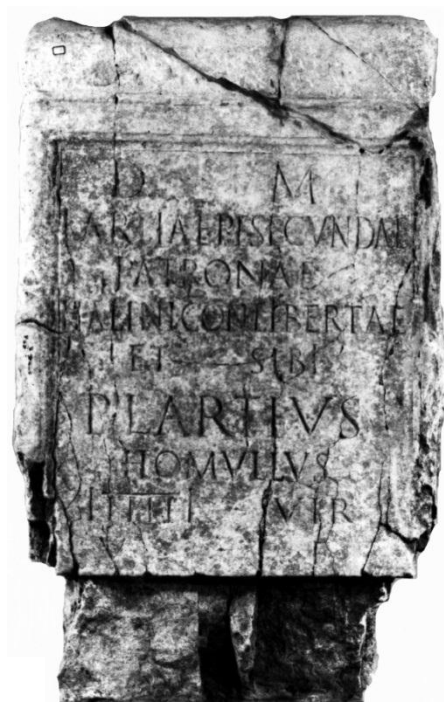 D M
LARTIAE P F SECVNDAE
PATRONAE
HALINI CONLIBERTAE
ET SIBI
P LARTIVS
HOMVLLVS
IIIIII VIR